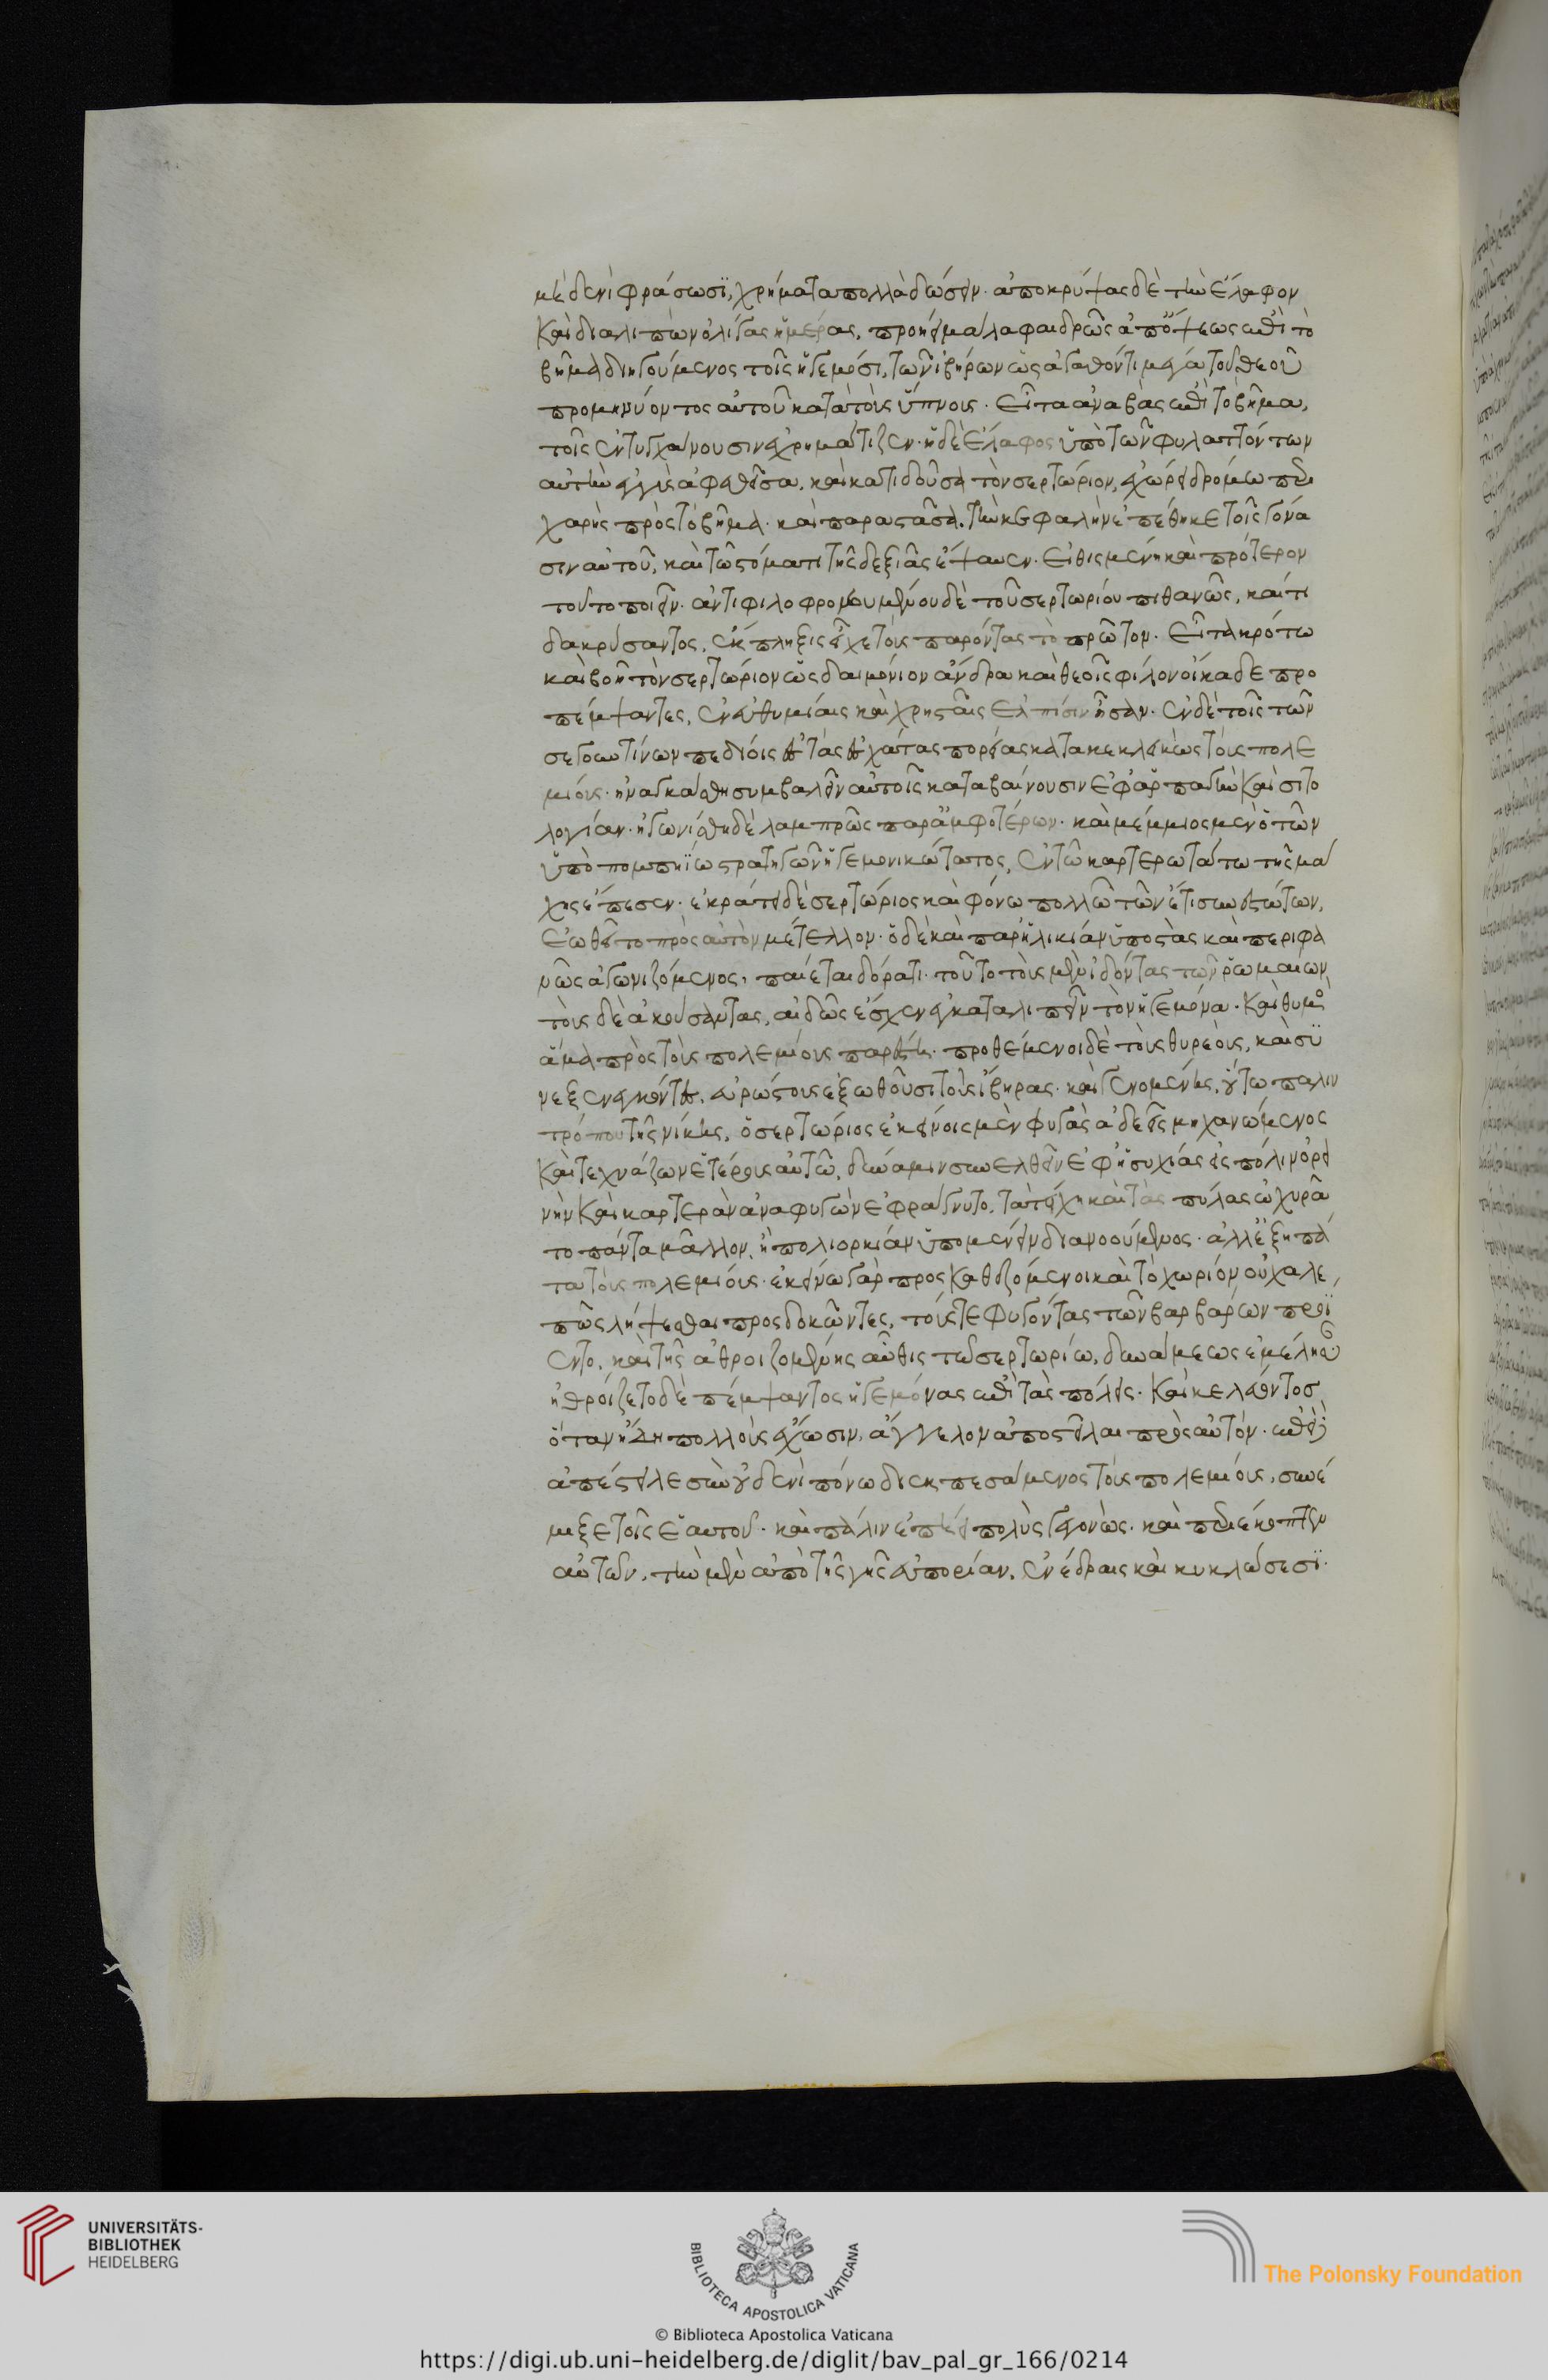 μηδενὶ φράσωσϊ, χρήματα πολλὰ δώσειν. ἀποκρύψας δὲ τὴν ἔλαφον
καὶ διαλιπὼν ὀλίγας ἡμέρας, προῄει μάλα φαιδρῶς ἀπ' ὄψεως ἐπὶ τὸ
βῆμα διηγούμενος τοῖς ἡγεμόσι, τῶν ἰβήρων ὡς ἀγαθόν τι μέγα τοῦ θεοῦ
προμηνύοντος αὐτοῦ κατὰ τοὺς ὕπνους. εἶτα ἀναβὰς ἐπὶ τὸ βῆμα,
τοῖς ἐντυγχάνουσιν ἐχρημάτιζεν. ἡ δὲ ἔλαφος ὑπὸ τῶν φυλαττόντων
αὐτὴν ἐγγὺς ἀφεθεῖσα, καὶ κατιδοῦσα τὸν σερτώριον, ἐχώρει δρόμω περι
χαρὴς πρὸς τὸ βῆμα. καὶ παραστᾶσα, τὴν κεφαλὴν ἐπέθηκε τοῖς γόνα
σιν αὐτοῦ, καὶ τῶ στόματι τῆς δεξιᾶς ἔψαυεν. εἰθισμένη καὶ πρότερον
τοῦτο ποιεῖν. ἀντιφιλοφρονουμένου δὲ τοῦ σερτωρίου πιθανῶς, καί τι
δακρύσαντος, ἔκπληξις εἶχε τοὺς παρόντας τὸ πρῶτον. εἶτα κρότω
καὶ βοῆ τὸν σερτώριον ὡς δαιμόνιον ἄνδρα καὶ θεοῖς φίλον οἴκαδε προ
πέμψαντες, ἐν εὐθυμίαις καὶ χρησταῖς ἐλπίσιν ἦσαν. ἐν δὲ τοῖς τῶν
σεγουντίνων πεδίοις εἰς τὰς ἐσχάτας πορείας κατακεκλεικὼς τοὺς πολε
μίους. ἠναγκάσθη συμβαλεῖν αὐτοῖς καταβαίνουσιν ἐφ' ἁρπαγὴν καὶ σιτο
λογίαν. ἠγωνίσθη δὲ λαμπρῶς παρ' ἀμφοτέρων. καὶ μέμμιος μὲν ὁ τῶν
ὑπὸ πομπηΐω στρατηγῶν ἡγεμονικώτατος, ἐν τῶ καρτερωτάτω τῆς μά
χης ἔπεσεν. ἐκράτει δὲ σερτώριος καὶ φόνω πολλῶ τῶν ἔτι συνεστώτων,
ἐωθεῖτο πρὸς αὐτὸν μέτελλον. ὁ δὲ καὶ παρ' ἡλικίαν ὑποστὰς καὶ περιφα
νῶς ἀγωνιζόμενος, παίεται δόρατι. τοῦτο τοὺς μὲν ἰδόντας τῶν ῥωμαίων,
τοὺς δὲ ἀκούσαντας, αἰδὼς ἔσχεν ἐγκαταλιπεῖν τὸν ἡγεμόνα. καὶ θυμὸ
ἅμα πρὸς τοὺς πολεμίους παρέστη. προθέμενοι δὲ τοὺς θυρεοὺς, καὶ συ
νεξενεγκόντες, εὐρώστως ἐξωθοῦσι τοὺς ἴβηρας. καὶ γενομένης, οὕτω παλιν
τρόπου τῆς νίκης, ὁ σερτώριος ἐκείνοις μὲν φυγὰς ἀδεεῖς μηχανώμενος
καὶ τεχνάζων ἑτέραν αὐτῶ, δύναμιν συνελθεῖν ἐφ' ἡσυχίας εἰς πόλιν ὀρει
νὴν καὶ καρτερὰν ἀναφυγὼν ἐφράγνυτο, τὰ τείχη καὶ τὰς πύλας ὠχυροῦ
το πάντα μᾶλλον, ἢ πολιορκίαν ὑπομένειν διανοούμενος. ἀλλ' ἐξηπά
τα τοὺς πολεμίους. ἐκείνω γὰρ προσκαθεζόμενοι καὶ τὸ χωρίον οὐ χαλε
πῶς λήψεσθαι προσδοκῶντες, τοὺς τε φυγόντας τῶν βαρβάρων προΐ
εντο, καὶ τῆς ἀθροιζομένης αὖθις τῶ σερτωρίω, δυνάμεως ἠμέλησαν
ἠθροίζετο δὲ πέμψαντος ἡγεμόνας ἐπὶ τὰς πόλεις. καὶ κελεύοντος
ὅταν ἤδη πολλοὺς ἔχωσιν, ἄγγελον ἀποστεῖλαι πρὸς αὐτόν. ἐπεὶ δ'
ἀπέστειλε σὺν οὐδενὶ πόνω διεκπεσάμενος τοὺς πολεμίους, συνέ
μιξε τοῖς ἑαυτοῦ. καὶ πάλιν ἐπῄει πολὺς γεγονὼς. καὶ περιέκοπτεν
αὐτῶν, τὴν μὲν ἀπὸ τῆς γῆς εὐπορίαν, ἐνέδραις καὶ κυκλώσεσϊ.
UNIVERSITÄTS-
BIBLIOTHEK
HEIDELBERG
BIBLIOTECA APOSTOLICA VATICANA
The Polonsky Foundation
© Biblioteca Apostolica Vaticana
https://digi.ub.uni-heidelberg.de/diglit/bav_pal_gr_166/0214